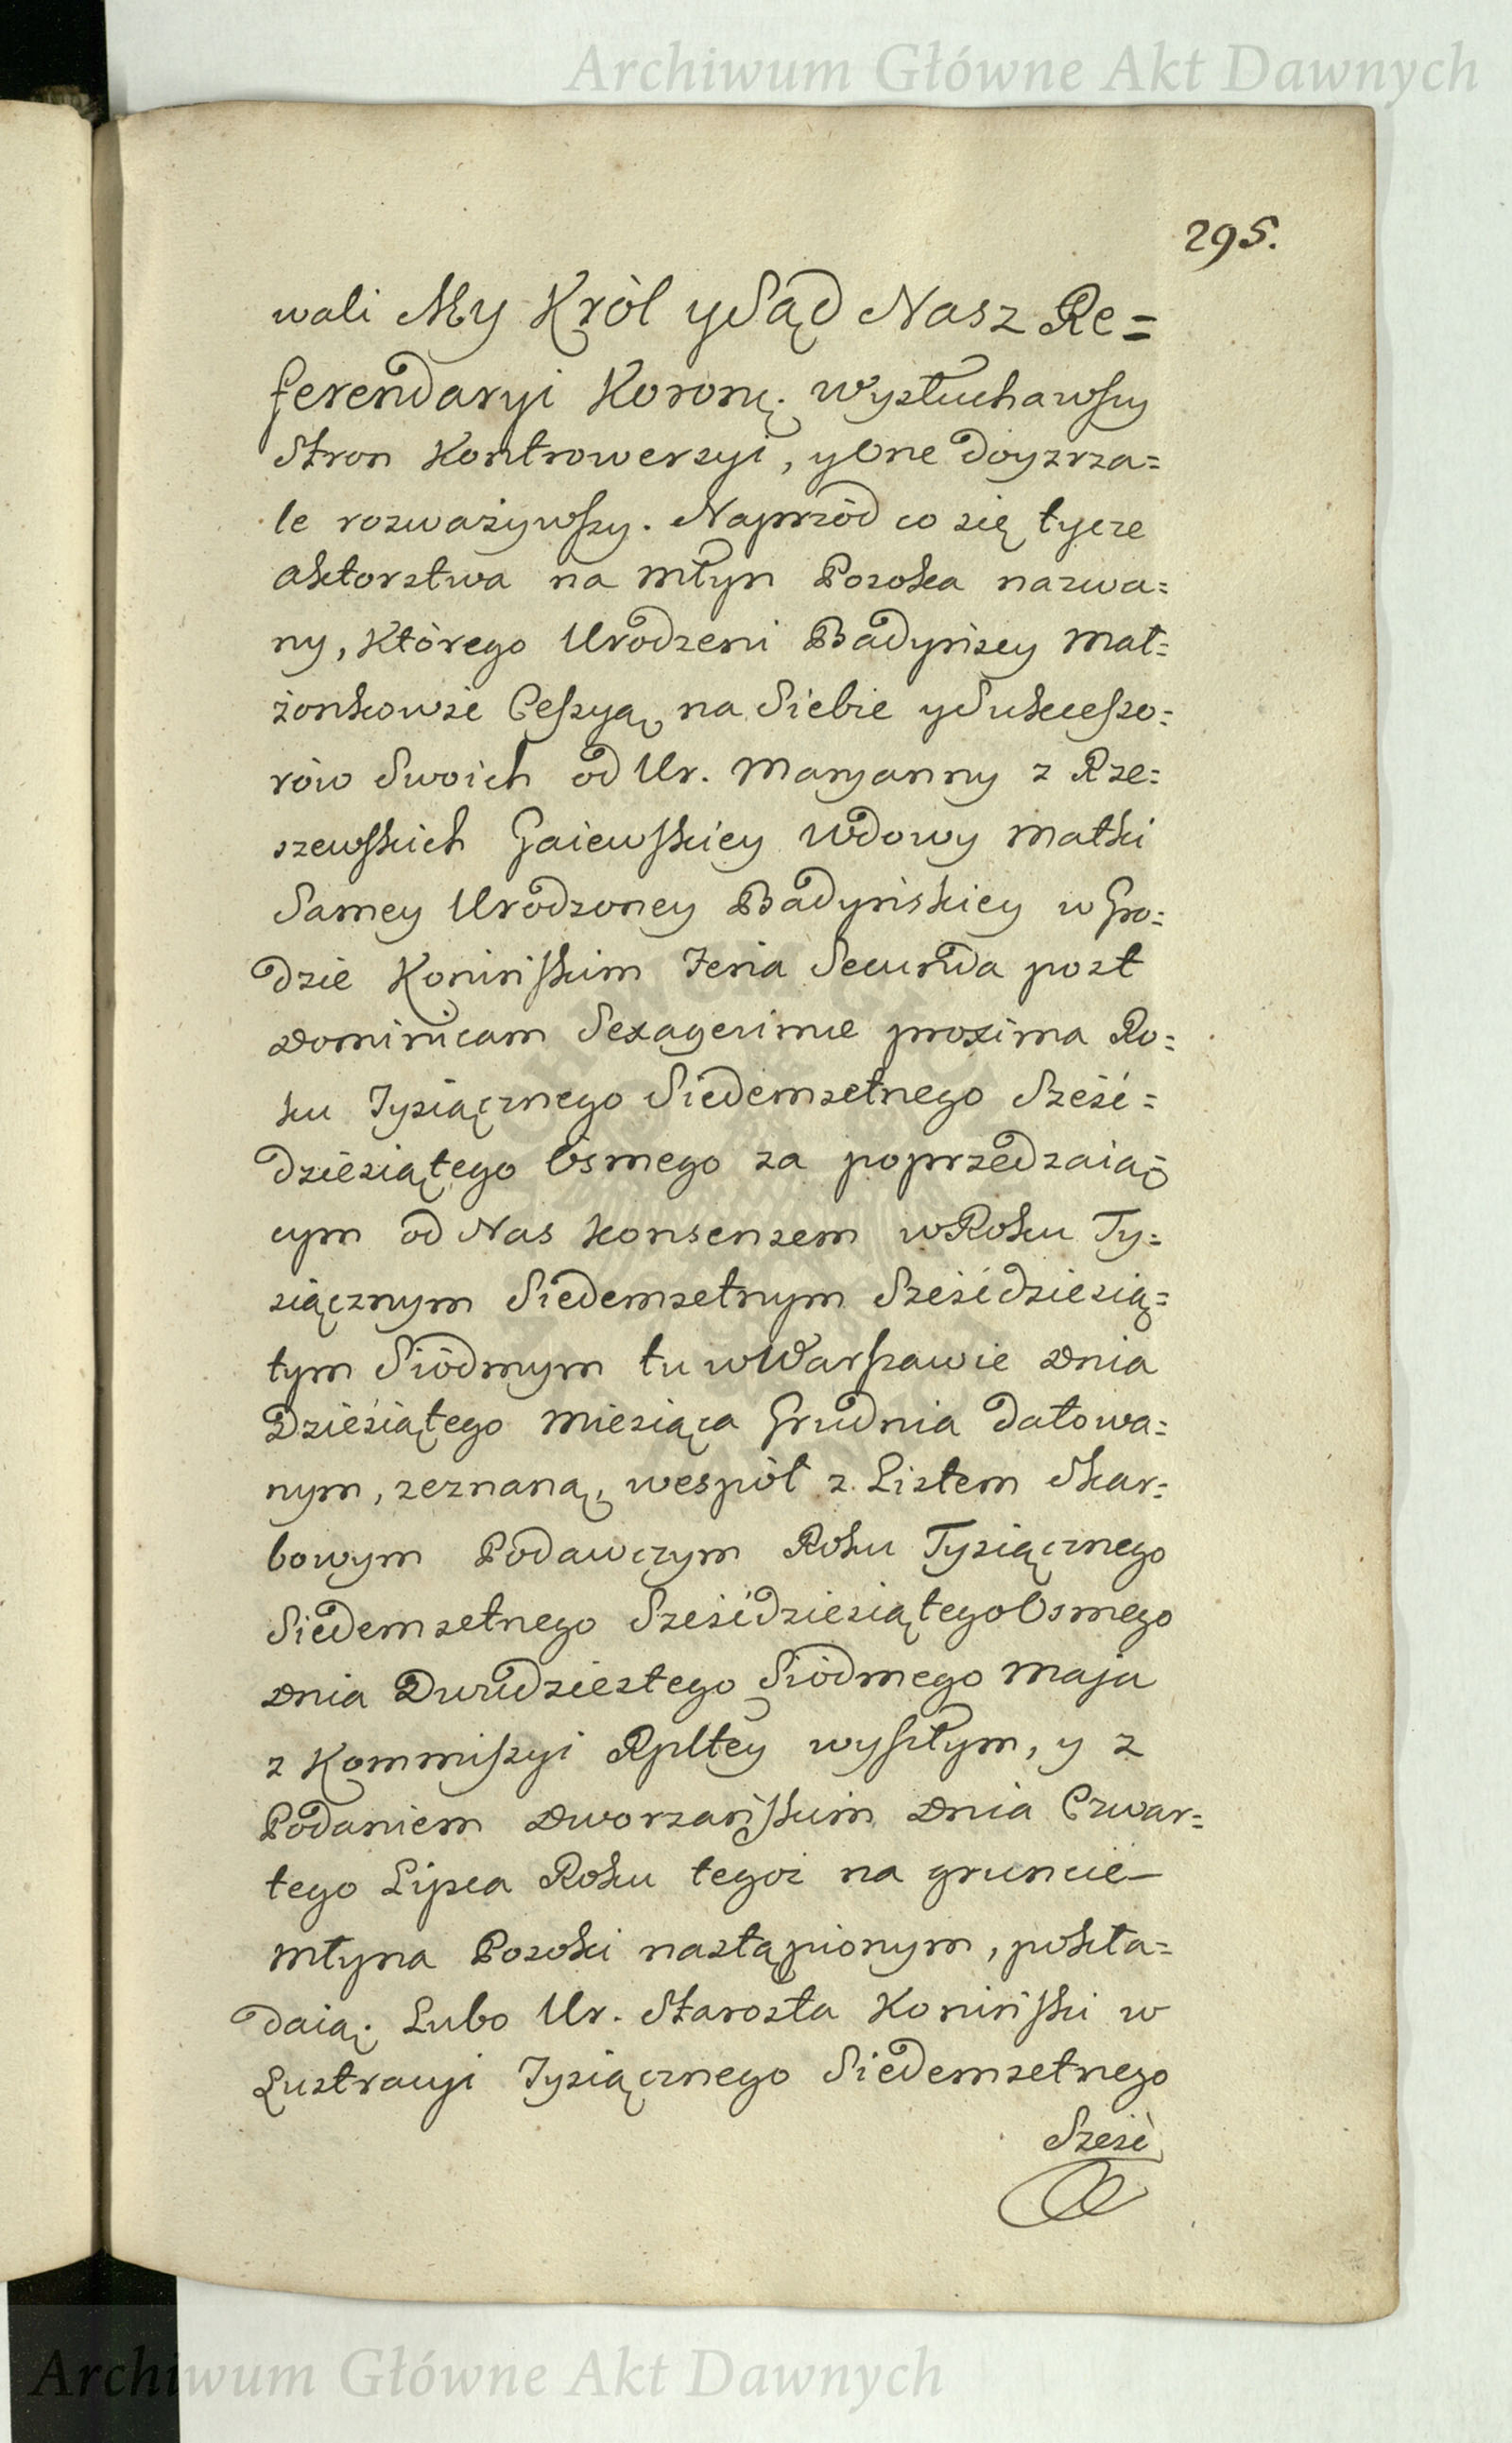 Archiwum Główne Akt Dawnych
295.
wali My Król y Sąd Nasz Re=
ferendaryi Koronę. wysłuchawszy
Stron Kontrowersyi, y One doyzrza=
le rozważywszy. Naprzód co się tycze
aktorstwa na Młyn Posoka nazwa=
ny, którego Urodzeni Badyńscy Mał=
żonkowie Cessyą, na Siebie y Sukcesso=
rów Swoich od Ur. Maryanny z Rze=
szewskich Gaiewskiey Wdowy Matki
Samey Urodzoney Badyńskiey w Gro=
dzie Konińskim Feria Secunda post
Dominicam Sexagesimæ proxima Ro=
ku Tysiącznego Siedemsetnego Sześć=
dziesiątego Osmego za poprzedzaią
cym od Nas konsensem w Roku Ty=
siącznym Siedemsetnym Sześćdziesią=
tym Siódmym tu w Warszawie Dnia
Dziesiątego Miesiąca Grudnia datowa=
nym, zeznaną, wespół z Listem Skar=
bowym Podawczym Roku Tysiącznego
Siedemsetnego Sześćdziesiątego Osmego
Dnia Dwudziestego Siódmego Maja
z Kommissyi Rpltey wyszłym, y z
Podaniem Dworzańskim Dnia Czwar=
tego Lipca Roku tegoż na gruncie
Młyna Posoki nastąpionym, pokła=
daią. Lubo Ur. Starosta Koniński w
Lustracyi Tysiącznego Siedemsetnego
Sześć
Archiwum Główne Akt Dawnych